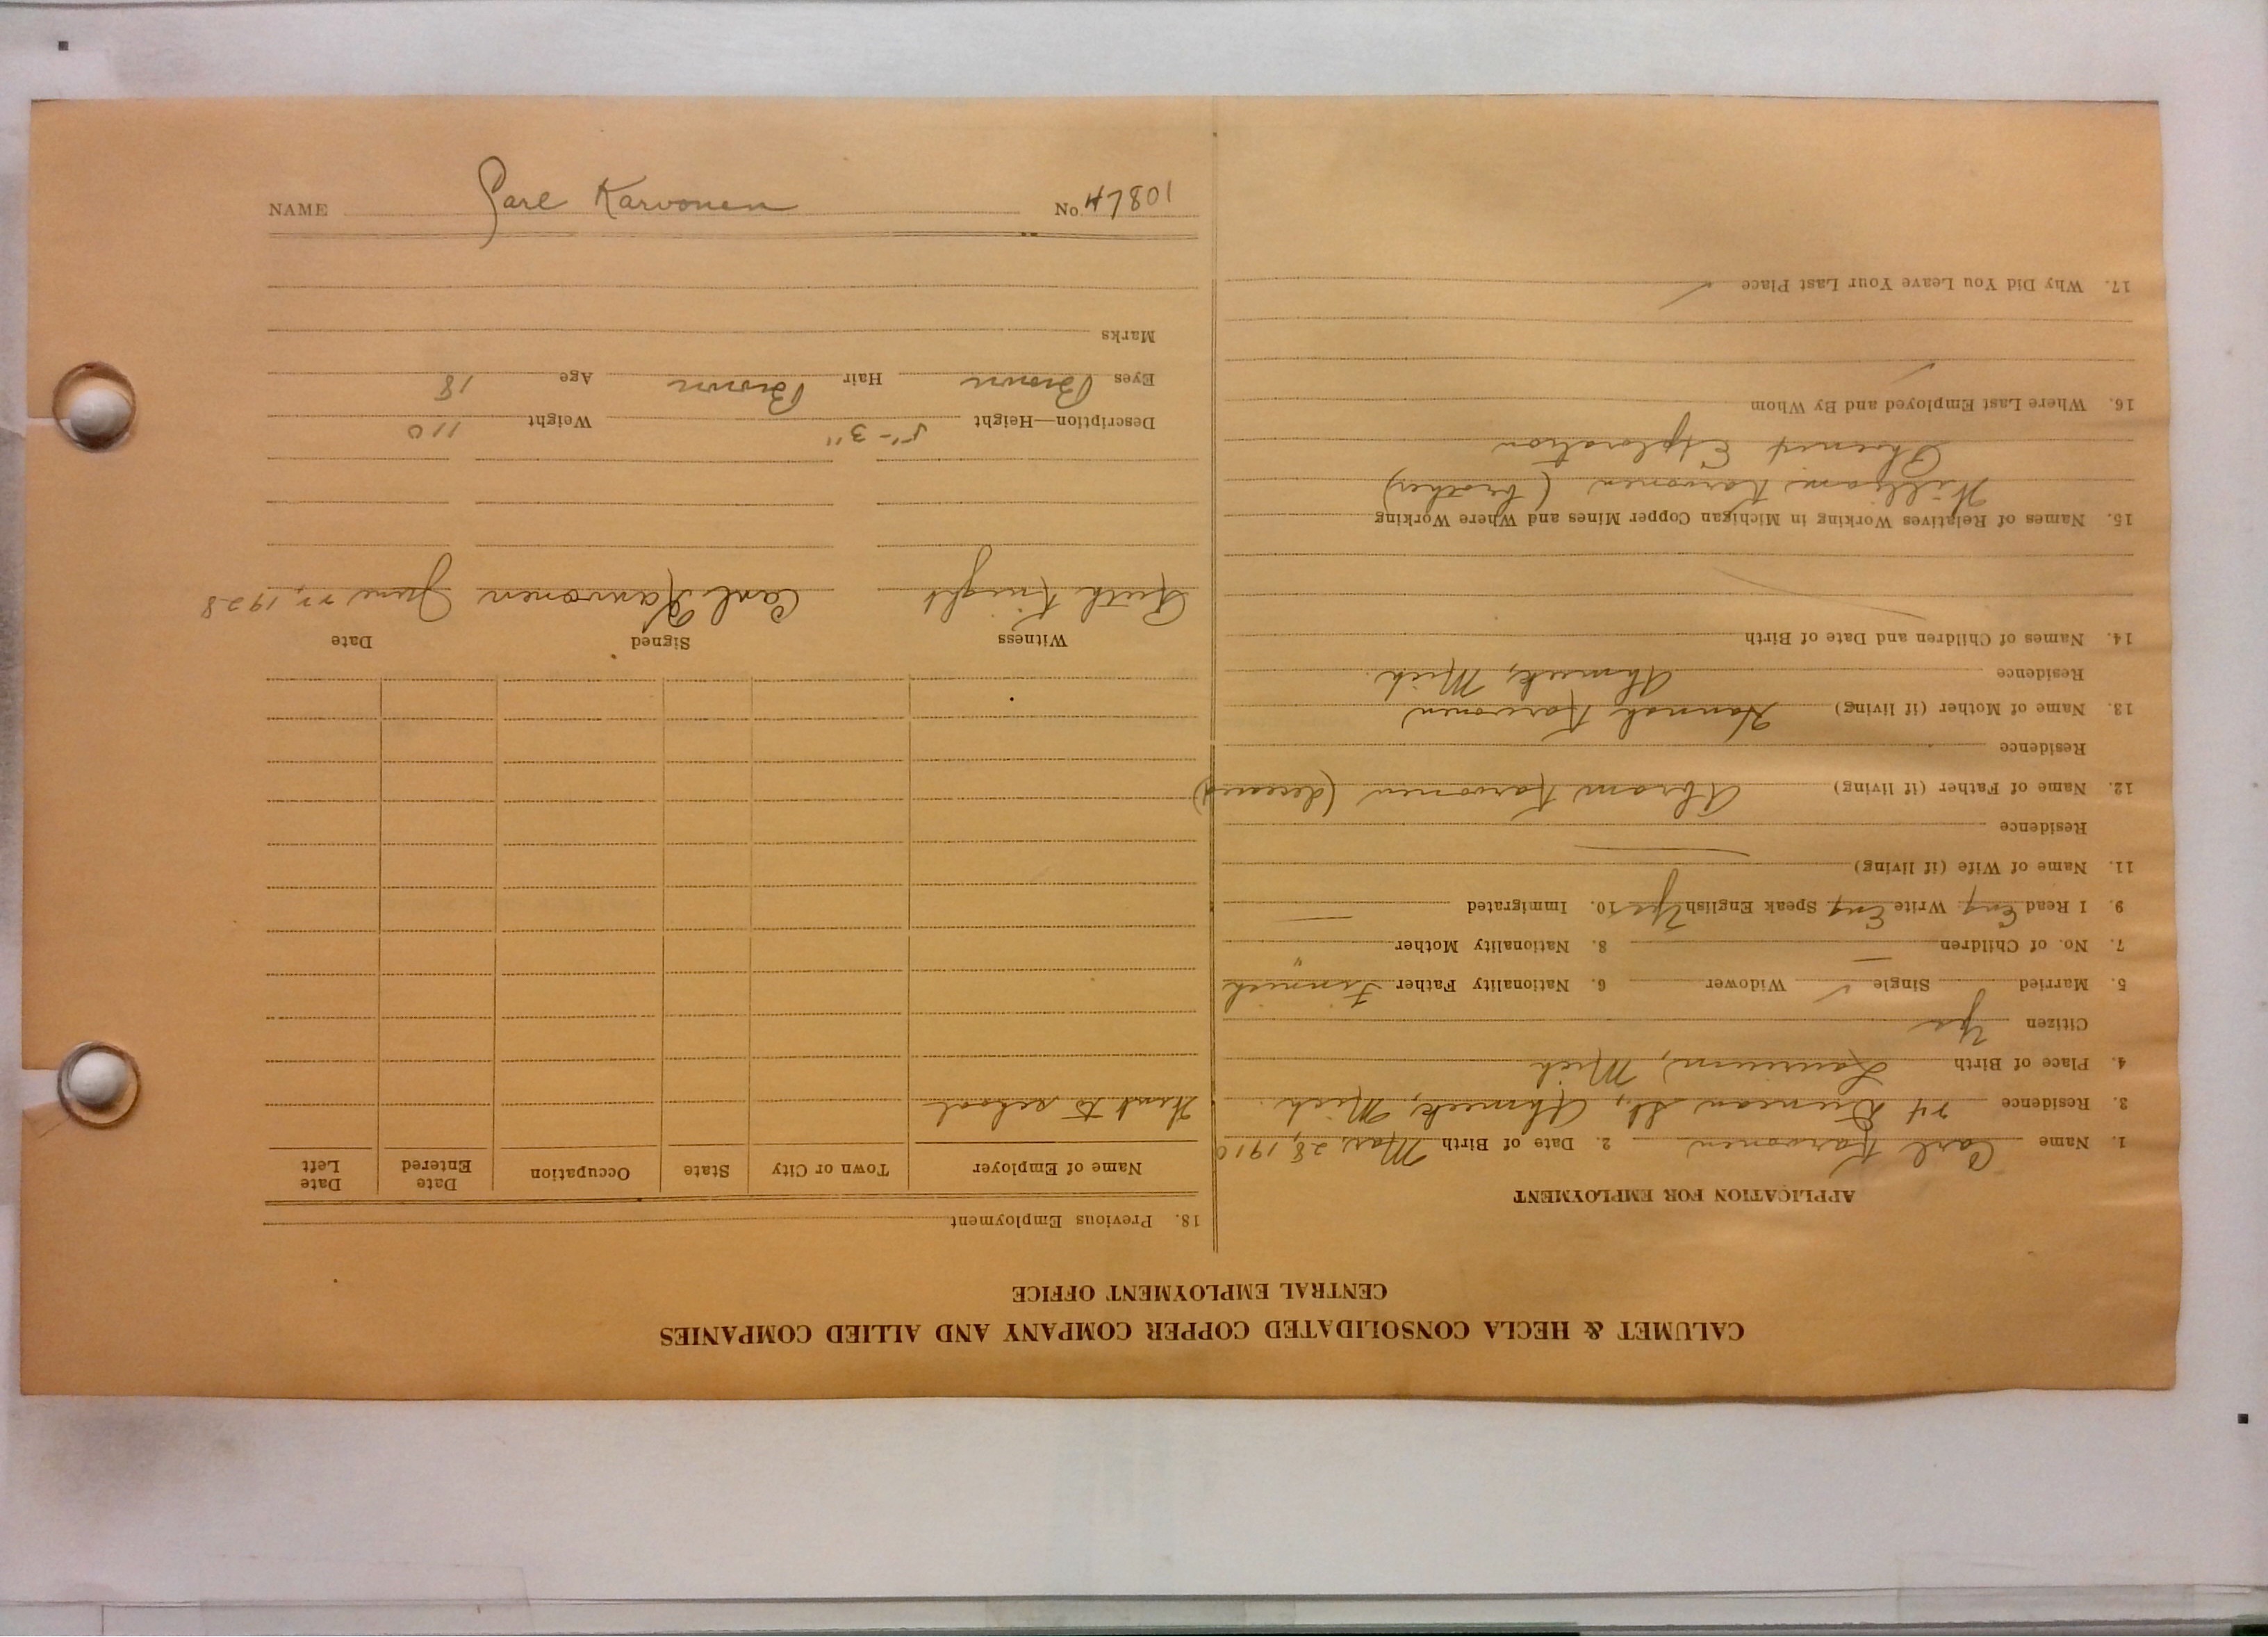 NAME Carl Karvonen No. 47801
CALUMET & HECLA CONSOLIDATED COPPER COMPANY AND ALLIED COMPANIES
CENTRAL EMPLOYMENT OFFICE
APPLICATION FOR EMPLOYMENT
1. Name Carl Karvonen 2. Date of Birth Mar. 28, 1910
3. Residence 24 Duncan St., Ahmeek, Mich.
4. Place of Birth Laurium, Mich
Citizen Yes
5. Married Single ✓ Widower 6. Nationality Father Finnish
7. No. of Children — 8. Nationality Mother "
9. I Read Eng Write Eng Speak English Yes 10. Immigrated —
11. Name of Wife (if living) —
Residence
12. Name of Father (if living) Abram Karvonen (deceased)
Residence
13. Name of Mother (if living) Hannah Karvonen
Residence Ahmeek, Mich.
14. Names of Children and Date of Birth
15. Names of Relatives Working in Michigan Copper Mines and Where Working
William Karvonen (brother)
Phoenix Exploration
16. Where Last Employed and By Whom
✓
17. Why Did You Leave Your Last Place ✓
18. Previous Employment
Name of Employer Town or City State Occupation Date Entered Date Left
Went to school
Witness Signed Date
Ruth Knight Carl Karvonen June 22, 1928
Description—Height 5'-3" Weight 110
Eyes Brown Hair Brown Age 18
Marks